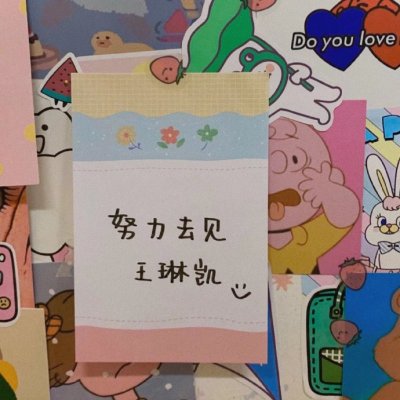 Do you love
努力去见
王琳凯